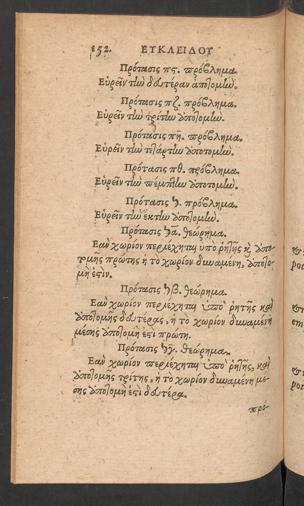 152. ΕΥΚΛΕΙΔΟΥ
Πρότασις πϛ. πρόβλημα.
Εὑρεῖν τὴν δευτέραν ἀποτομὴν.
Πρότασις πζ. πρόβλημα.
Εὑρεῖν τὴν τρίτην ἀποτομὴν.
Πρότασις πη. πρόβλημα.
Εὑρεῖν τὴν τετάρτην ἀποτομὴν.
Πρότασις πθ. πρόβλημα.
Εὑρεῖν τὴν πέμπτην ἀποτομὴν.
Πρότασις ϟ. πρόβλημα.
Εὑρεῖν τὴν ἕκτην ἀποτομὴν.
Πρότασις ϟα. θεώρημα.
Εὰν χωρίον περιέχηται ὑπὸ ῥητῆς καὶ ἀποτο-
μῆς πρώτης ἡ τὸ χωρίον δυναμένη, ἀποτο-
μή ἐστιν.
Πρότασις ϟβ. θεώρημα.
Εὰν χωρίον περιέχηται ὑπὸ ῥητῆς καὶ
ἀποτομῆς δευτέρας, ἡ τὸ χωρίον δυναμένη
μέσης ἀποτομή ἐστι πρώτη.
Πρότασις ϟγ. θεώρημα.
Εὰν χωρίον περιέχηται ὑπὸ ῥητῆς, καὶ
ἀποτομῆς τρίτης, ἡ τὸ χωρίον δυναμένη μέ-
σης ἀποτομή ἐστι δευτέρα.
προ-